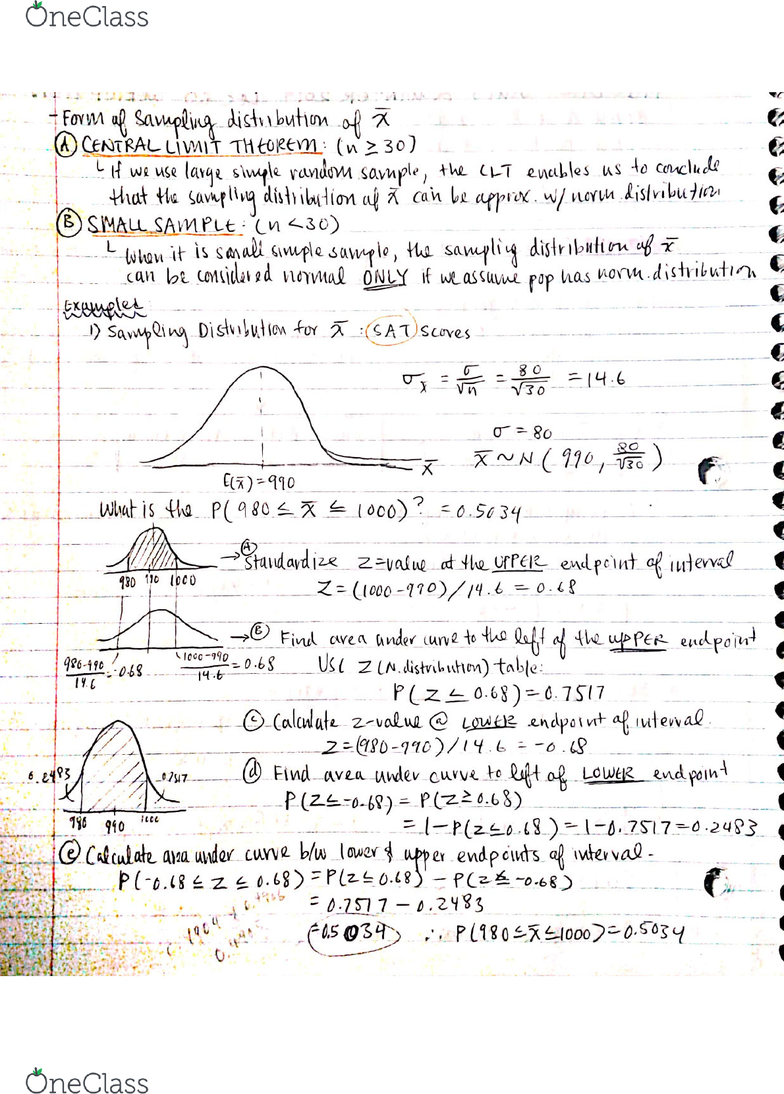 OneClass
- Form of Sampling distribution of x̄
Ⓐ CENTRAL LIMIT THEOREM: (n ≥ 30)
If we use large simple random sample, the CLT enables us to conclude
that the sampling distribution of x̄ can be approx. w/ norm distribution
Ⓑ SMALL SAMPLE: (n < 30)
When it is small simple sample, the sampling distribution of x̄
can be considered normal ONLY if we assume pop has norm. distribution
Examples
1) Sampling Distribution for x̄ : SAT scores
σx̄ = σ/√n = 80/√30 = 14.6
σ = 80
x̄ ~ N ( 990, 80/√30 )
x̄
E(x̄) = 990
What is the P(980 ≤ x̄ ≤ 1000)? = 0.5034
→ Ⓐ Standardize z=value at the UPPER endpoint of interval
980 990 1000
Z = (1000-990)/14.6 = 0.68
→ Ⓑ Find area under curve to the left of the UPPER endpoint
980-990/14.6 = -0.68
1000-990/14.6 = 0.68
Use Z (N. distribution) table:
P(Z ≤ 0.68) = 0.7517
ⓒ Calculate z-value @ LOWER endpoint of interval.
Z = (980-990)/14.6 = -0.68
0.2483
0.7517
ⓓ Find area under curve to left of LOWER endpoint
P(Z ≤ -0.68) = P(Z ≥ 0.68)
980 990 1000
= 1-P(Z ≤ 0.68) = 1-0.7517 = 0.2483
ⓔ Calculate area under curve b/w lower & upper endpoints of interval.
P(-0.68 ≤ Z ≤ 0.68) = P(Z ≤ 0.68) - P(Z ≤ -0.68)
= 0.7517 - 0.2483
= 0.5034 ∴ P(980 ≤ x̄ ≤ 1000) = 0.5034
OneClass